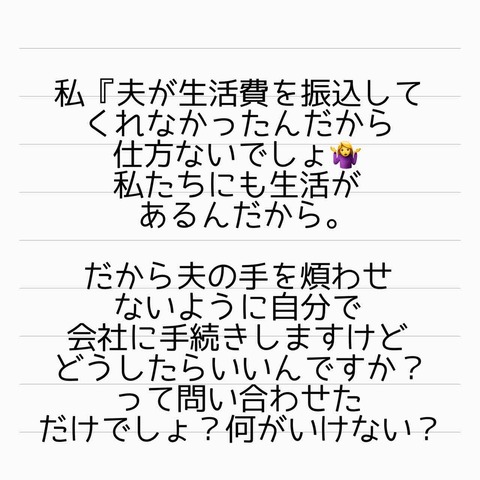 私『夫が生活費を振込して
くれなかったんだから
仕方ないでしょ🤷‍♀️
私たちにも生活が
あるんだから。
だから夫の手を煩わせ
ないように自分で
会社に手続きしますけど
どうしたらいいんですか？
って問い合わせた
だけでしょ？何がいけない？